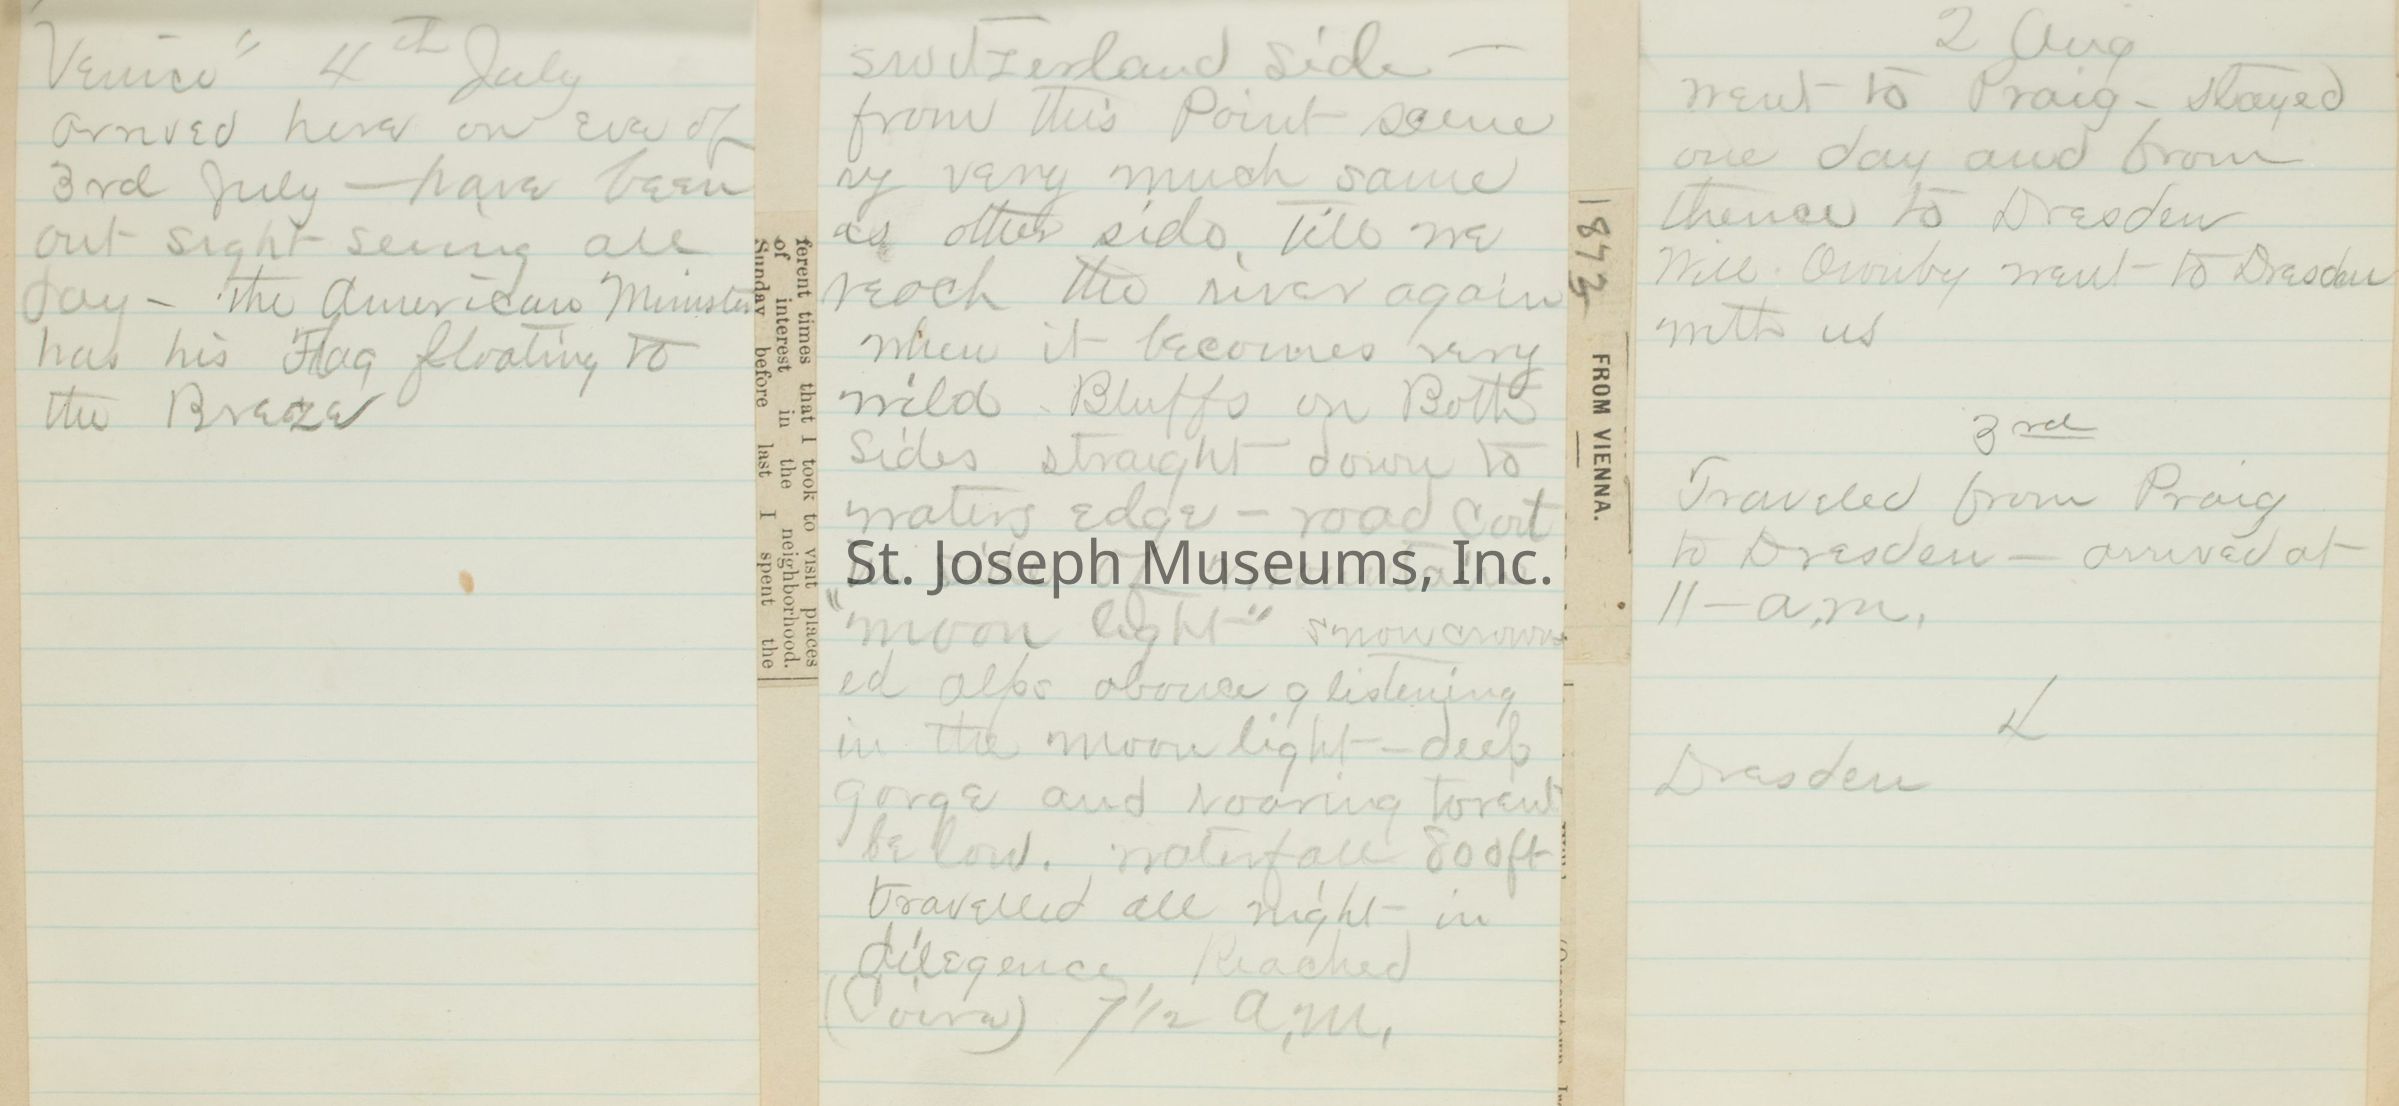 Venice" 4th July
arrived here on eve of
3rd July — have been
out sight seeing all
day – the American Minister
has his Flag floating to
the Breeze
ferent times that I took to visit places
of interest in the neighborhood.
Sunday before last I spent the
Switzerland side —
from this Point scene
ry very much same
as other side. till we
reach the river again
when it becomes very
wild. Bluffs on Both
Sides straight down to
waters edge – road Cut
St. Joseph Museums, Inc.
"moon light" snow crown
ed alps above glistening
in the moon light – deep
gorge and roaring torent
below. waterfall 800ft
travelled all night in
dilegence Reached
7 1/2 a.m.
187
FROM VIENNA.
2 Aug
went to Praig – stayed
one day and from
thence to Dresden
Will. Ownby went to Dresden
with us
3rd
Traveled from Praig
to Dresden — arrived at
11 – a.m.
4
Dresden